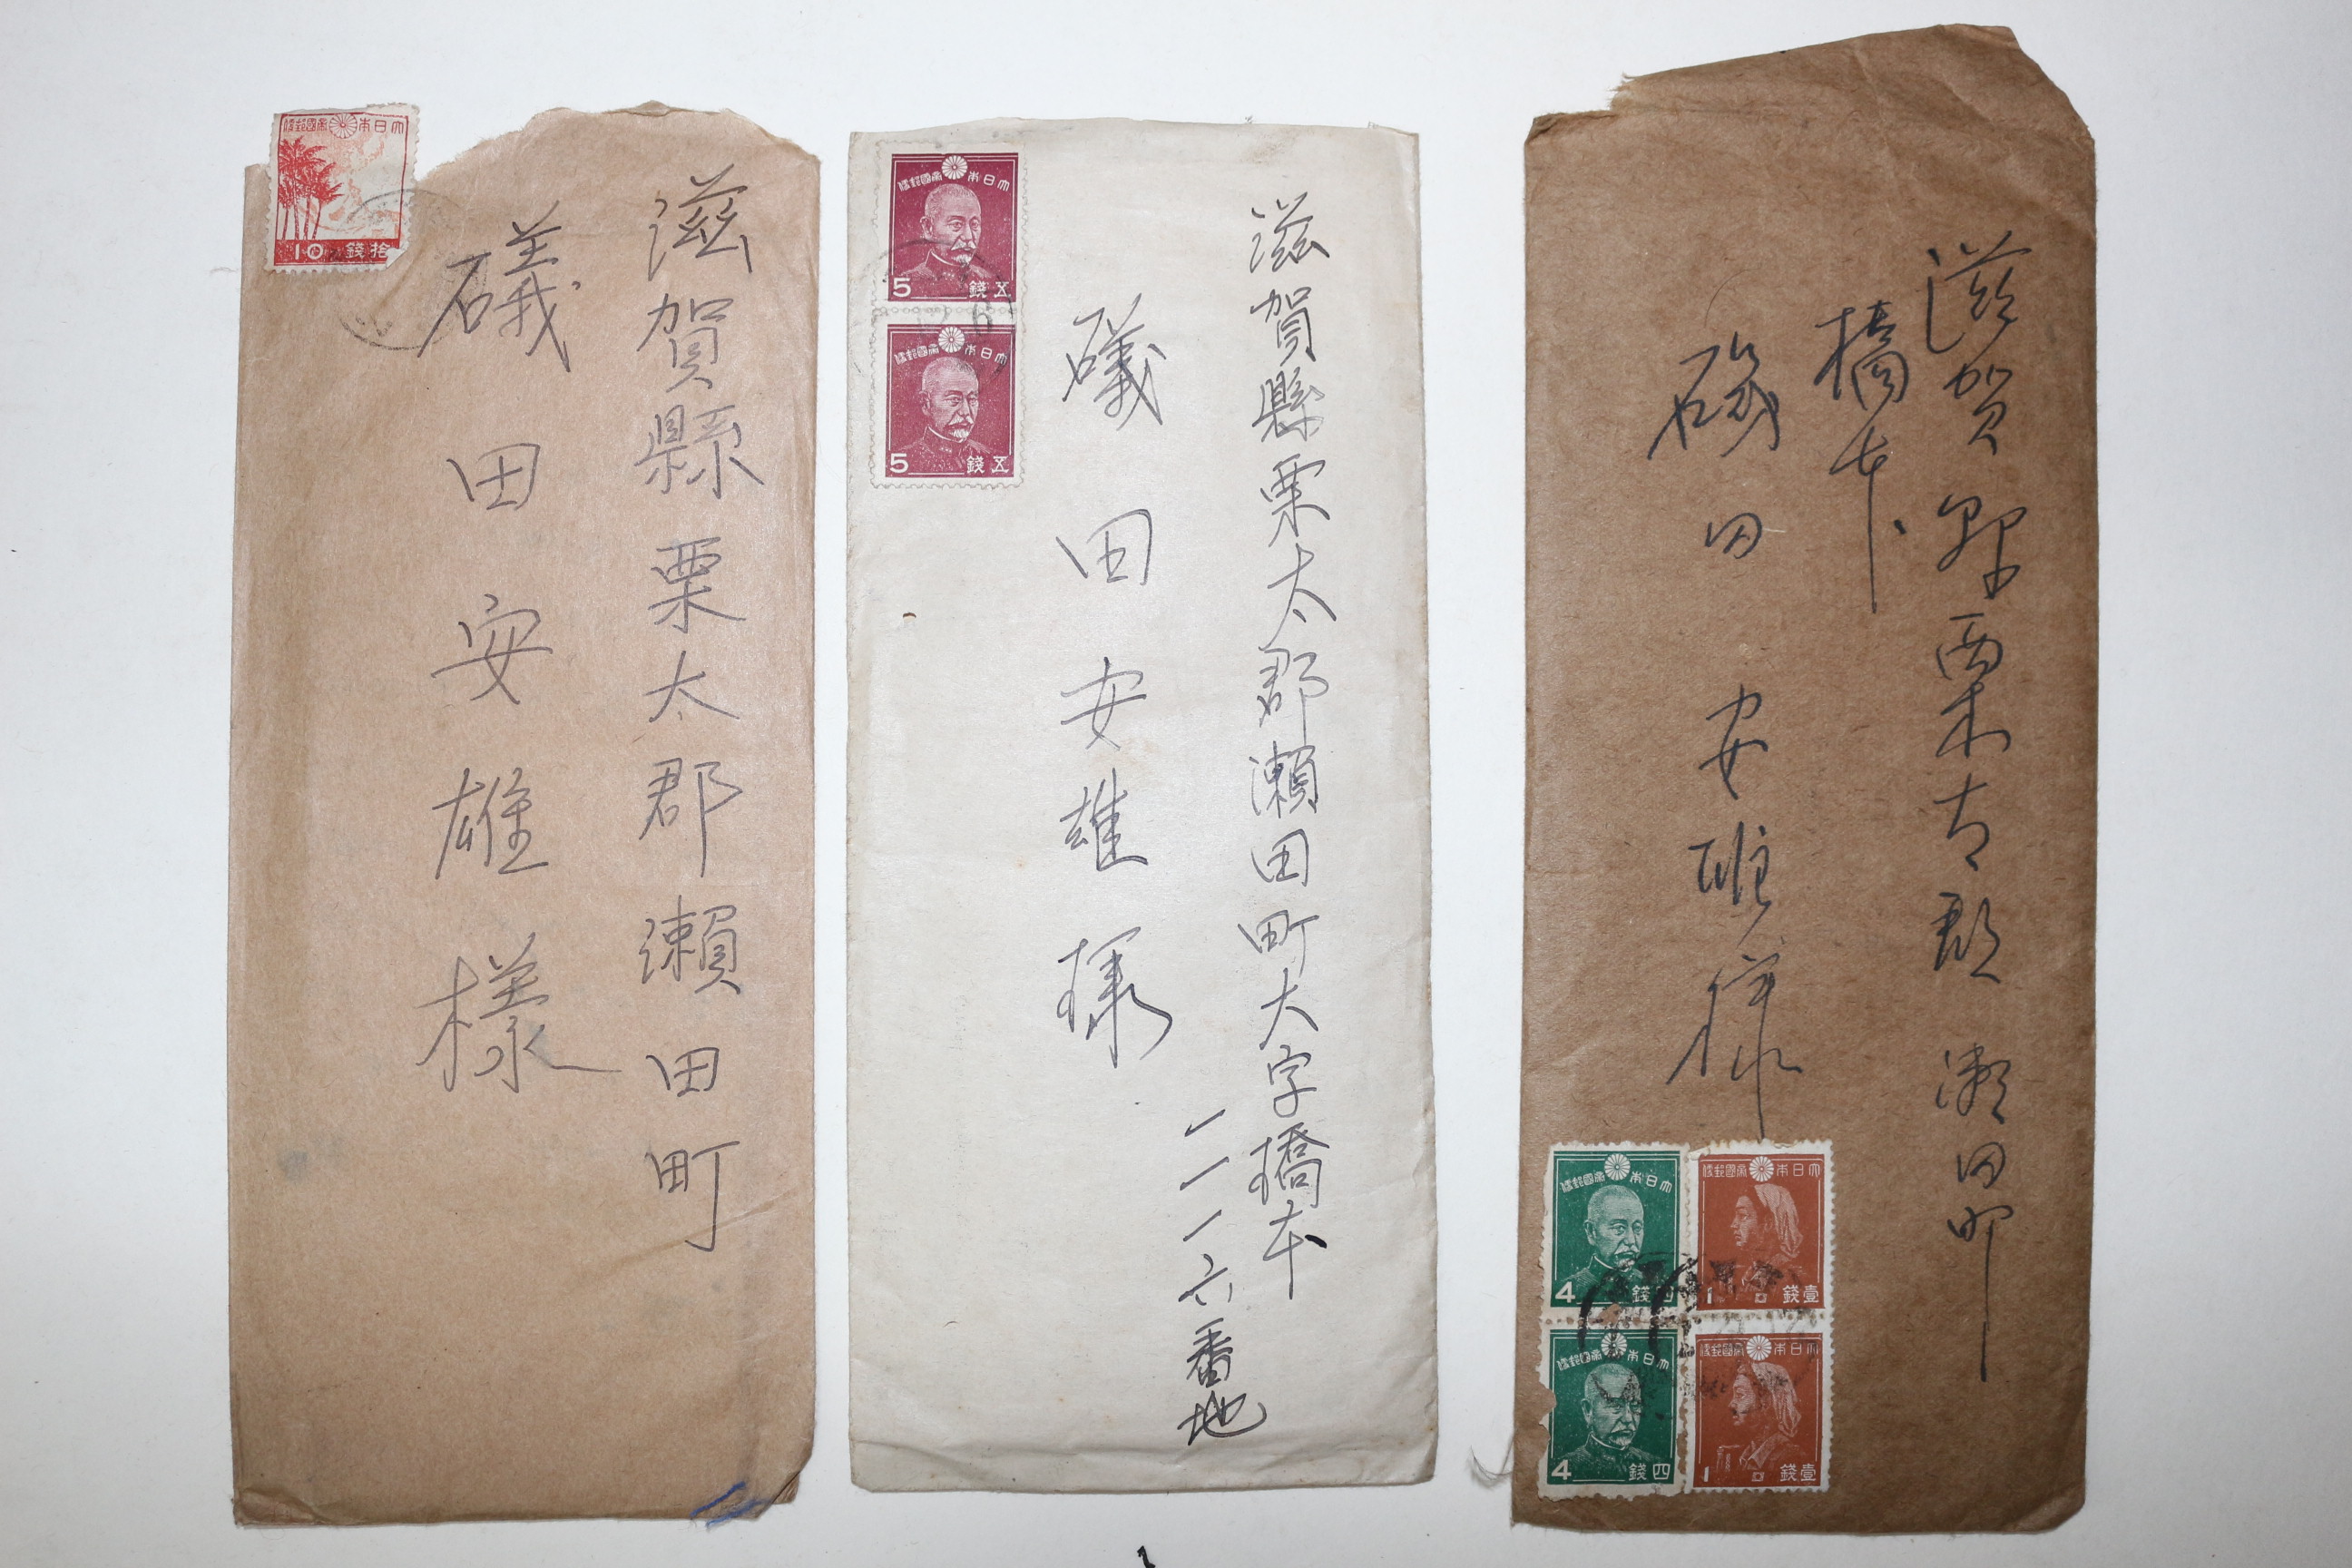 大日本帝國郵便
10 拾錢
滋賀縣栗太郡瀬田町
礒田安雄様
大日本帝國郵便
5 五錢
大日本帝國郵便
5 五錢
滋賀縣栗太郡瀬田町大字橋本
一一一六番地
礒田安雄様
滋賀県栗太郡瀬田町
橋本
磯田安雄様
大日本帝國郵便
4 四錢
大日本帝國郵便
1 壹錢
大日本帝國郵便
4 四錢
大日本帝國郵便
1 壹錢